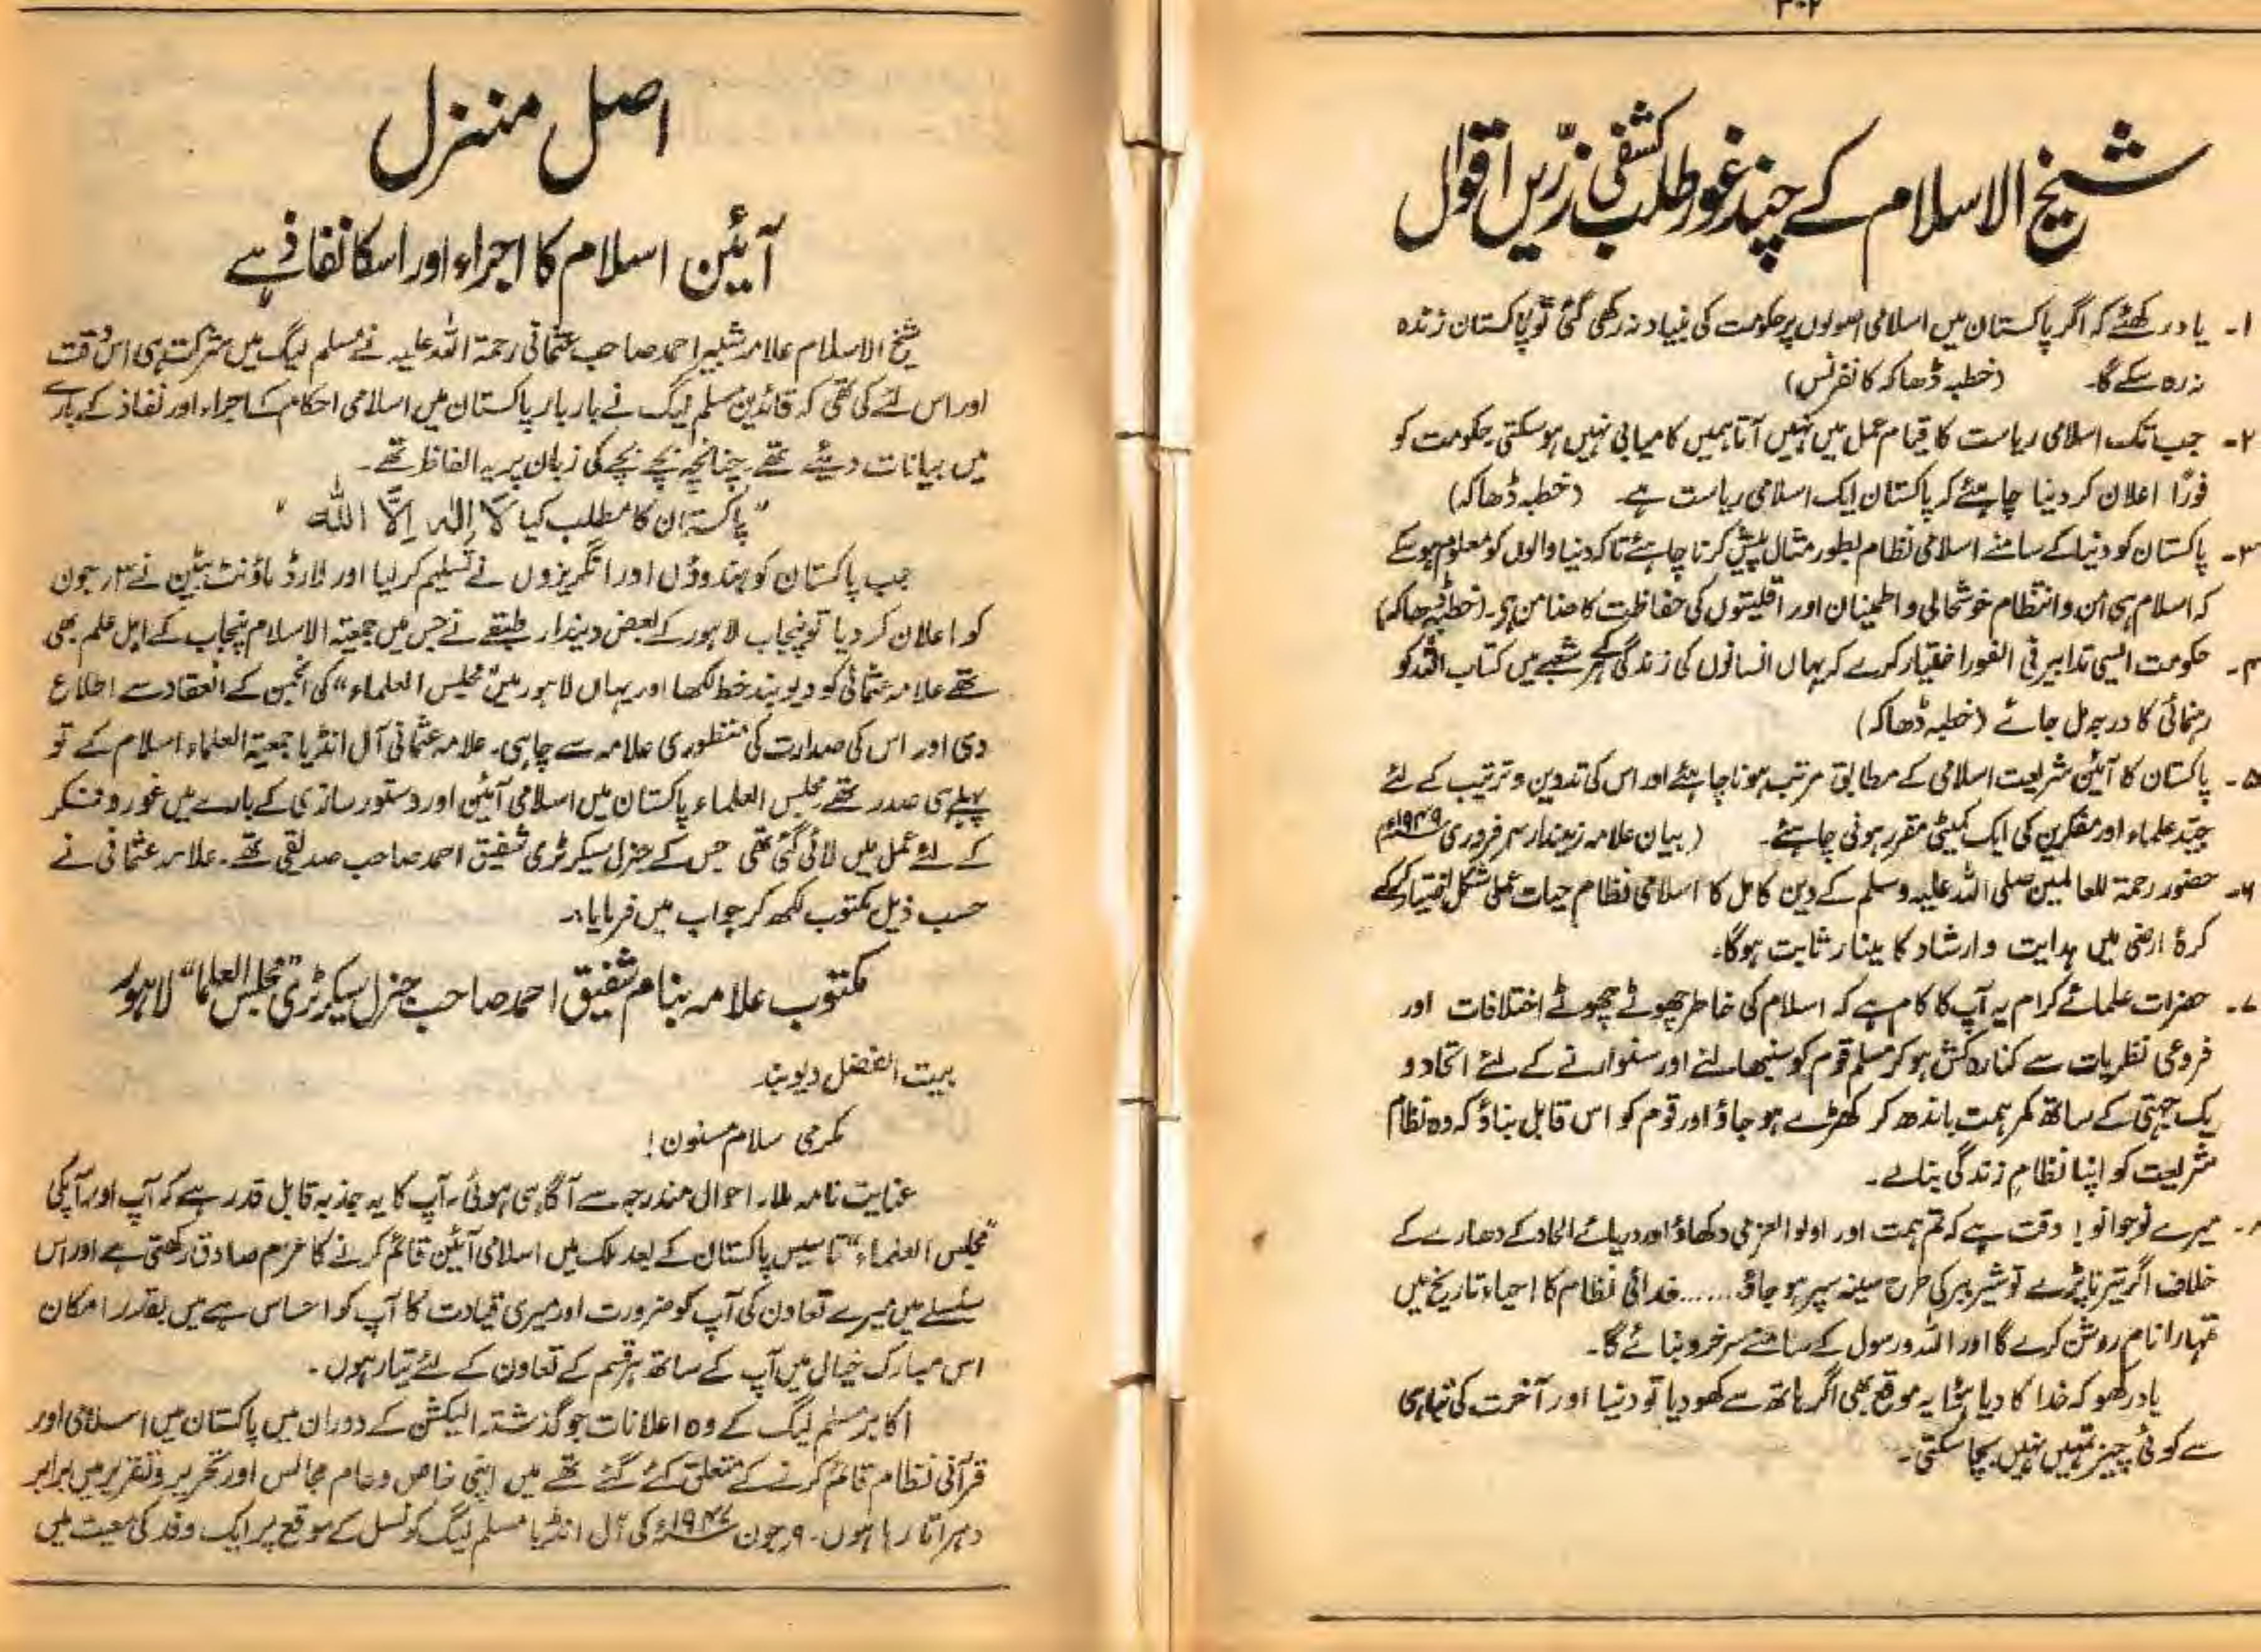 ۳۰۲
شیخ الاسلام کے چند غور طلب کشفی زرّیں اقوال
۱۔ یاد رکھئے کہ اگر پاکستان میں اسلامی اصولوں پر حکومت کی بنیاد نہ رکھی گئی تو پاکستان زندہ
نہ رہ سکے گا۔ (خطبہ ڈھاکہ کانفرنس)
۲۔ جب تک اسلامی ریاست کا قیام عمل میں نہیں آتا ہمیں کامیابی نہیں ہوسکتی۔ حکومت کو
فورًا اعلان کر دینا چاہئے کہ پاکستان ایک اسلامی ریاست ہے۔ (خطبہ ڈھاکہ)
۳۔ پاکستان کو دنیا کے سامنے اسلامی نظام بطور مثال پیش کرنا چاہئے تاکہ دنیا والوں کو معلوم ہو سکے
کہ اسلام ہی امن و انتظام خوشحالی و اطمینان اور اقلیتوں کی حفاظت کا ضامن ہے۔ (خطبہ ڈھاکہ)
۴۔ حکومت ایسی تدابیر فی الفور اختیار کرے کہ یہاں انسانوں کی زندگی کے ہر شعبے میں کتاب اللہ کو
رہنمائی کا درجہ مل جائے (خطبہ ڈھاکہ)
۵۔ پاکستان کا آئین شریعت اسلامی کے مطابق مرتب ہونا چاہئے اور اس کی تدوین و ترتیب کے لئے
جیّد علماء اور مفکرین کی ایک کمیٹی مقرر ہونی چاہئے۔ (بیان علامہ زمیندار ۴ر فروری ۱۹۴۹ء)
۶۔ حضور رحمۃ للعالمین صلی اللہ علیہ وسلم کے دین کامل کا اسلامی نظام حیات عملی شکل اختیار کر کے
کرۂ ارضی میں ہدایت و ارشاد کا مینار ثابت ہوگا۔
۷۔ حضرات علمائے کرام یہ آپ کا کام ہے کہ اسلام کی خاطر چھوٹے چھوٹے اختلافات اور
فروعی نظریات سے کنارہ کش ہو کر مسلم قوم کو سنبھالنے اور سنوارنے کے لئے اتحاد و
یک جہتی کے ساتھ کمر ہمت باندھ کر کھڑے ہو جاؤ اور قوم کو اس قابل بناؤ کہ وہ نظام
شریعت کو اپنا نظامِ زندگی بنالے۔
۸۔ میرے نوجوانو! وقت ہے کہ تم ہمت اور اولوالعزمی دکھاؤ اور دریائے الحاد کے دھارے کے
خلاف اگر تیرنا پڑے تو شیر ببر کی طرح سینہ سپر ہو جاؤ ...... خدائی نظام کا احیاء تاریخ میں
تمہارا نام روشن کرے گا اور اللہ و رسول کے سامنے سرخرو بنائے گا۔
یاد رکھو کہ خدا کا دیا ہوا یہ موقع بھی اگر ہاتھ سے کھو دیا تو دنیا اور آخرت کی تباہی
سے کوئی چیز تمہیں نہیں بچا سکتی۔
اصل منزل
آئین اسلام کا اجراء اور اسکا نفاذ ہے
شیخ الاسلام علامہ شبیر احمد صاحب عثمانی رحمۃ اللہ علیہ نے مسلم لیگ میں شرکت ہی اس وقت
اور اس لئے کی تھی کہ قائدین مسلم لیگ نے بار بار پاکستان میں اسلامی احکام کے اجراء اور نفاذ کے بارے
میں بیانات دیئے تھے۔ چنانچہ بچے بچے کی زبان پر یہ الفاظ تھے۔
"پاکستان کا مطلب کیا لَا اِلٰہَ اِلَّا اللّٰہ"
جب پاکستان کو ہندوؤں اور انگریزوں نے تسلیم کر لیا اور لارڈ ماؤنٹ بیٹن نے ۳ر جون
کو اعلان کر دیا تو پنجاب لاہور کے بعض دیندار طبقے نے جس میں جمعیۃ الاسلام پنجاب کے اہل علم بھی
تھے علامہ عثمانی کو دیوبند خط لکھا اور یہاں لاہور میں "مجلس العلماء" کی انجمن کے انعقاد سے اطلاع
دی اور اس کی صدارت کی منظوری علامہ سے چاہی۔ علامہ عثمانی آل انڈیا جمعیۃ العلماء اسلام کے تو
پہلے ہی صدر تھے۔ مجلس العلماء پاکستان میں اسلامی آئین اور دستور سازی کے بارے میں غور و فکر
کے لئے عمل میں لائی گئی تھی جس کے جنرل سیکرٹری شفیق احمد صاحب صدیقی تھے۔ علامہ عثمانی نے
حسب ذیل مکتوب لکھ کر جواب میں فرمایا:۔
مکتوب علامہ بنام شفیق احمد صاحب جنرل سیکرٹری "مجلس العلما" لاہور
بیت الفضل دیوبند
مکرمی سلام مسنون!
عنایت نامہ ملا۔ احوال مندرجہ سے آگاہی ہوئی۔ آپ کا یہ جذبہ قابل قدر ہے کہ آپ اور آپکی
"مجلس العلماء" تاسیس پاکستان کے بعد ملک میں اسلامی آئین قائم کرنے کا عزم صادق رکھتی ہے اور اس
سلسلے میں میرے تعاون کی آپ کو ضرورت اور میری قیادت کا آپ کو احساس ہے میں بقدر امکان
اس مبارک خیال میں آپ کے ساتھ ہر قسم کے تعاون کے لئے تیار ہوں۔
اکابر مسلم لیگ کے وہ اعلانات جو گذشتہ الیکشن کے دوران میں پاکستان میں اسلامی اور
قرآنی نظام قائم کرنے کے متعلق کئے گئے تھے میں اپنی خاص و عام مجالس اور تحریر و تقریر میں برابر
دہراتا رہا ہوں۔ ۹ر جون ۱۹۴۷ء کی آل انڈیا مسلم لیگ کونسل کے موقع پر ایک وفد کی معیت میں